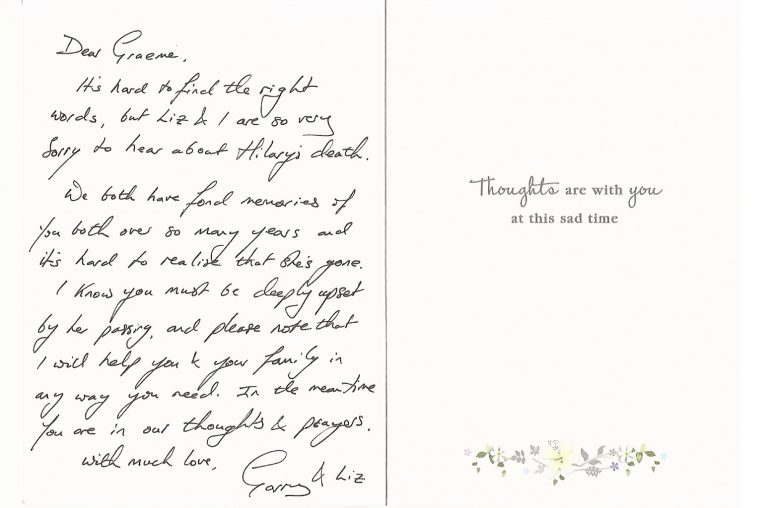 Dear Graeme,
It's hard to find the right
words, but Liz & I are so very
Sorry to hear about Hilary's death.
We both have fond memories of
you both over so many years and
it's hard to realise that she's gone.
I know you must be deeply upset
by her passing, and please note that
I will help you & your family in
any way you need. In the meantime
you are in our thoughts & prayers.
with much love,
Garry & Liz
Thoughts are with you
at this sad time